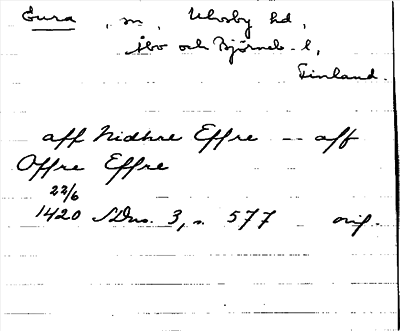 Eura, sn, Ulvsby hd,
Åbo och Björneb. l,
Finland.
aff Nidhre Effre -- aff
Offre Effre
22/6
1420 SDns. 3, s. 577 orig.